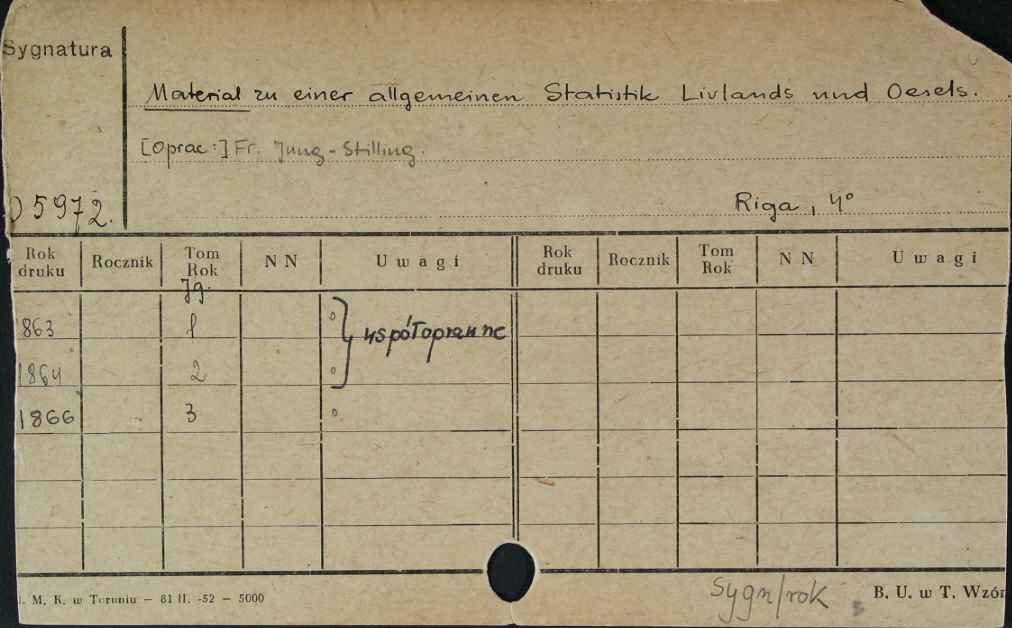 Sygnatura
Material zu einer allgemeinen Statistik Livlands und Oesels.
[Oprac:] Fr. Jung-Stilling.
5972.
Riga, 4°
Rok druku Rocznik Tom Rok NN Uwagi Rok druku Rocznik Tom Rok NN Uwagi
Jg.
863 1 współoprawne
1864 2
1866 3
Sygn/rok
M. K. w Toruniu — 81 II. -52 — 5000 B. U. w T. Wzór